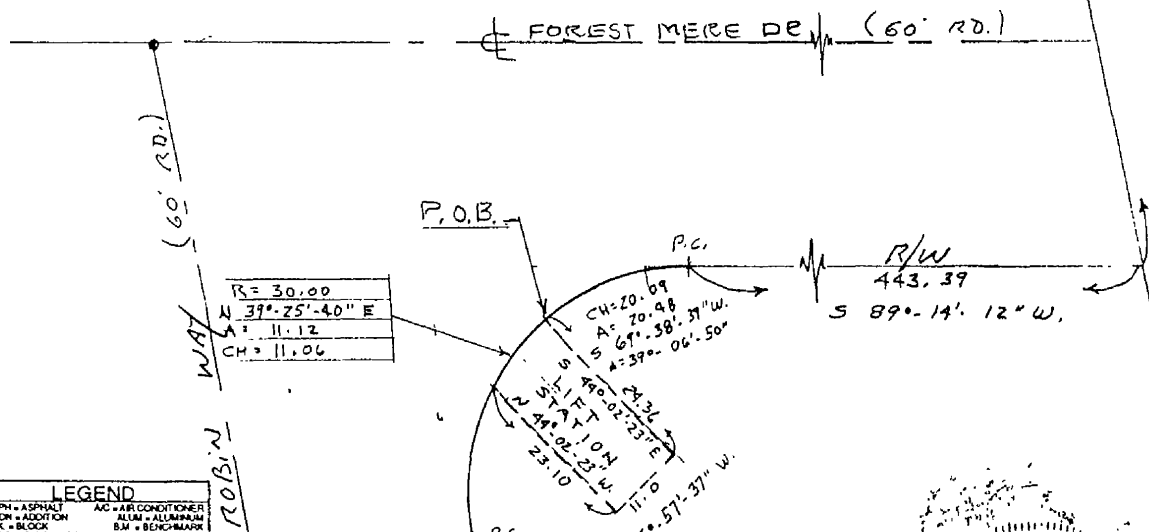 ℄ FOREST MERE DR (60' RD.)
(60' RD.)
P.O.B.
P.C.
R/W
443.39
S 89°-14'-12" W.
R= 30.00
N 39°-25'-40" E
A= 11.12
CH= 11.06
CH=20.09
A= 20.48
S 69°-38'-39" W.
Δ=39°-06'-50"
24.36
S 44°-02'-23" E
LIFT
STATION
N 44°-02'-23" W.
23.10
11.0
57'-37" W.
ROBIN WAY
LEGEND
PH = ASPHALT A/C = AIR CONDITIONER
ON = ADDITION ALUM = ALUMINUM
K = BLOCK B.M = BENCHMARK